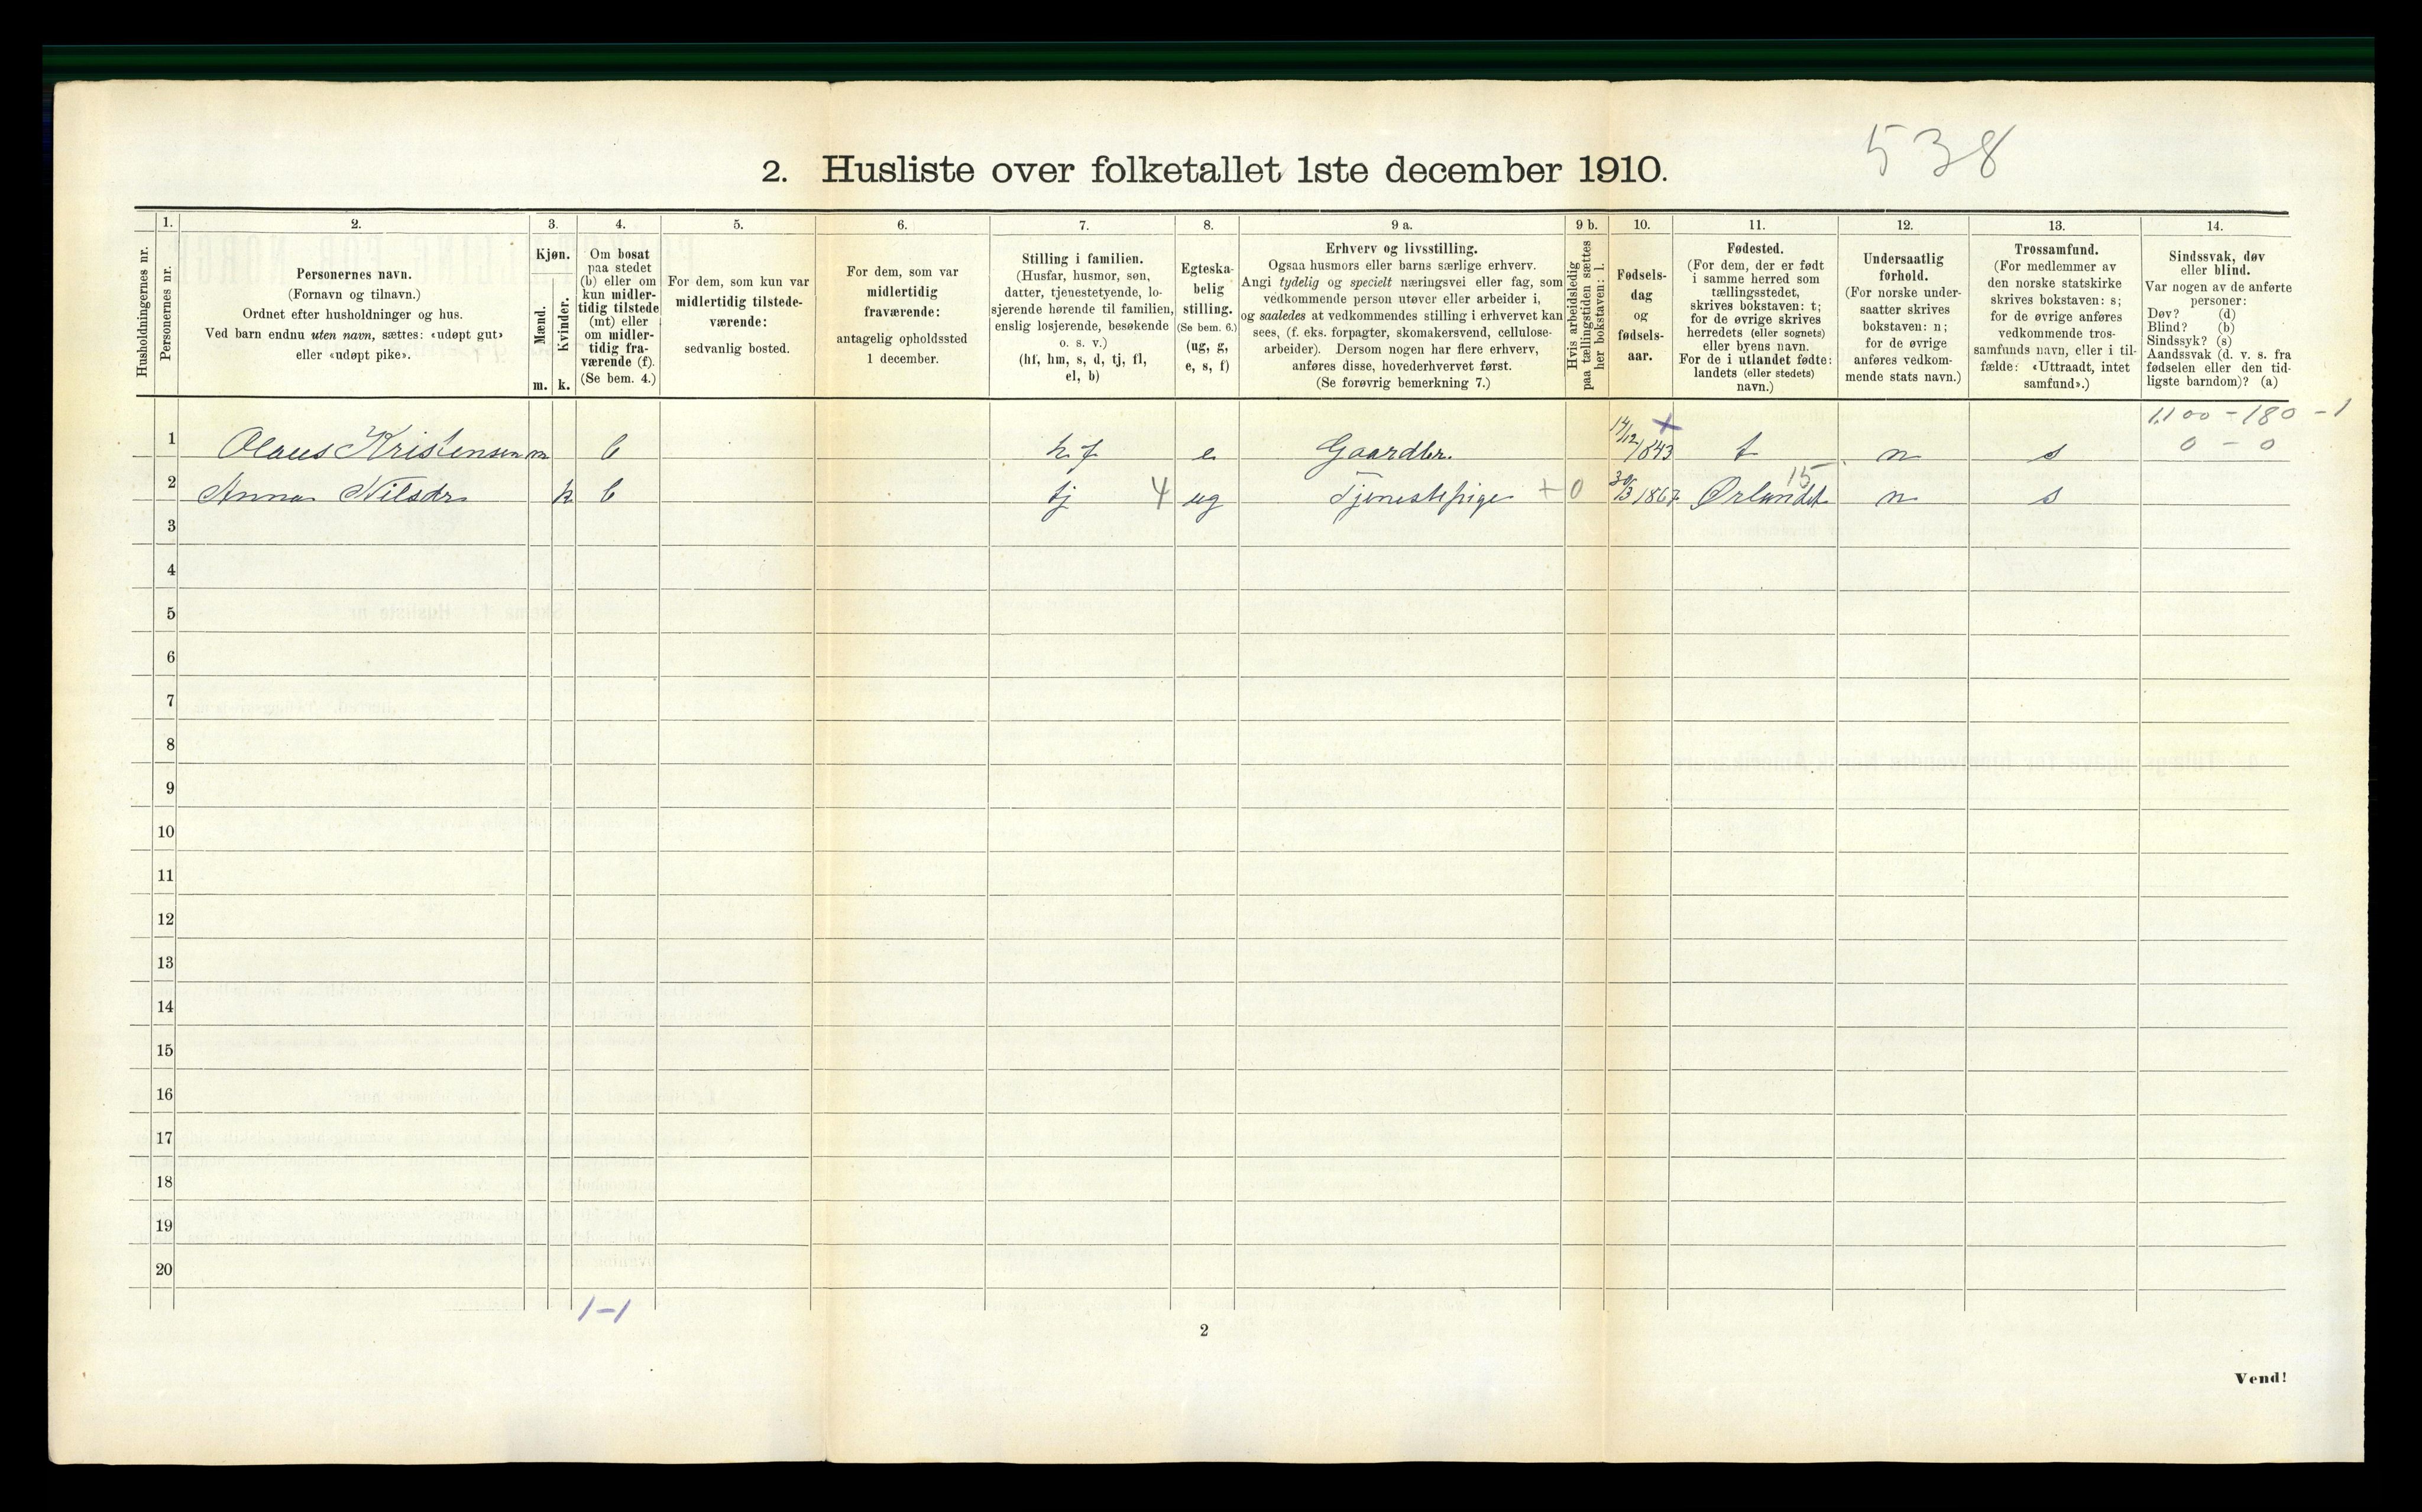 538
2. Husliste over folketallet 1ste december 1910.
Husholdningernes nr.
1.
Personernes nr.
2.
Personernes navn.
(Fornavn og tilnavn.)
Ordnet efter husholdninger og hus.
Ved barn endnu uten navn, sættes: «udøpt gut»
eller «udøpt pike».
3.
Kjøn.
Mænd.
Kvinder.
m. k.
4.
Om bosat
paa stedet
(b) eller om
kun midler-
tidig tilstede
(mt) eller
om midler-
tidig fra-
værende (f).
(Se bem. 4.)
5.
For dem, som kun var
midlertidig tilstede-
værende:
sedvanlig bosted.
6.
For dem, som var
midlertidig
fraværende:
antagelig opholdssted
1 december.
7.
Stilling i familien.
(Husfar, husmor, søn,
datter, tjenestetyende, lo-
sjerende hørende til familien,
enslig losjerende, besøkende
o. s. v.)
(hf, hm, s, d, tj, fl,
el, b)
8.
Egteska-
belig
stilling.
(Se bem. 6.)
(ug, g,
e, s, f)
9 a.
Erhverv og livsstilling.
Ogsaa husmors eller barns særlige erhverv.
Angi tydelig og specielt næringsvei eller fag, som
vedkommende person utøver eller arbeider i,
og saaledes at vedkommendes stilling i erhvervet kan
sees, (f. eks. forpagter, skomakersvend, cellulose-
arbeider). Dersom nogen har flere erhverv,
anføres disse, hovederhvervet først.
(Se forøvrig bemerkning 7.)
9 b.
Hvis arbeidsledig
paa tællingstiden sættes
her bokstaven: l.
10.
Fødsels-
dag
og
fødsels-
aar.
11.
Fødested.
(For dem, der er født
i samme herred som
tællingsstedet,
skrives bokstaven: t;
for de øvrige skrives
herredets (eller sognets)
eller byens navn.
For de i utlandet fødte:
landets (eller stedets)
navn.)
12.
Undersaatlig
forhold.
(For norske under-
saatter skrives
bokstaven: n;
for de øvrige
anføres vedkom-
mende stats navn.)
13.
Trossamfund.
(For medlemmer av
den norske statskirke
skrives bokstaven: s;
for de øvrige anføres
vedkommende tros-
samfunds navn, eller i til-
fælde: «Uttraadt, intet
samfund».)
14.
Sindssvak, døv
eller blind.
Var nogen av de anførte
personer:
Døv? (d)
Blind? (b)
Sindssyk? (s)
Aandssvak (d. v. s. fra
fødselen eller den tid-
ligste barndom)? (a)
1100 - 180 - 1
1 Olaus Kristensen m b hf e Gaardbr. 14/12 1843 x t n s 0 - 0
2 Anna Nilsdr k b tj 4 ug Tjenestepige + 0 30/3 1867 Ørlandet 15 n s
3
4
5
6
7
8
9
10
11
12
13
14
15
16
17
18
19
20
1-1
2
Vend!